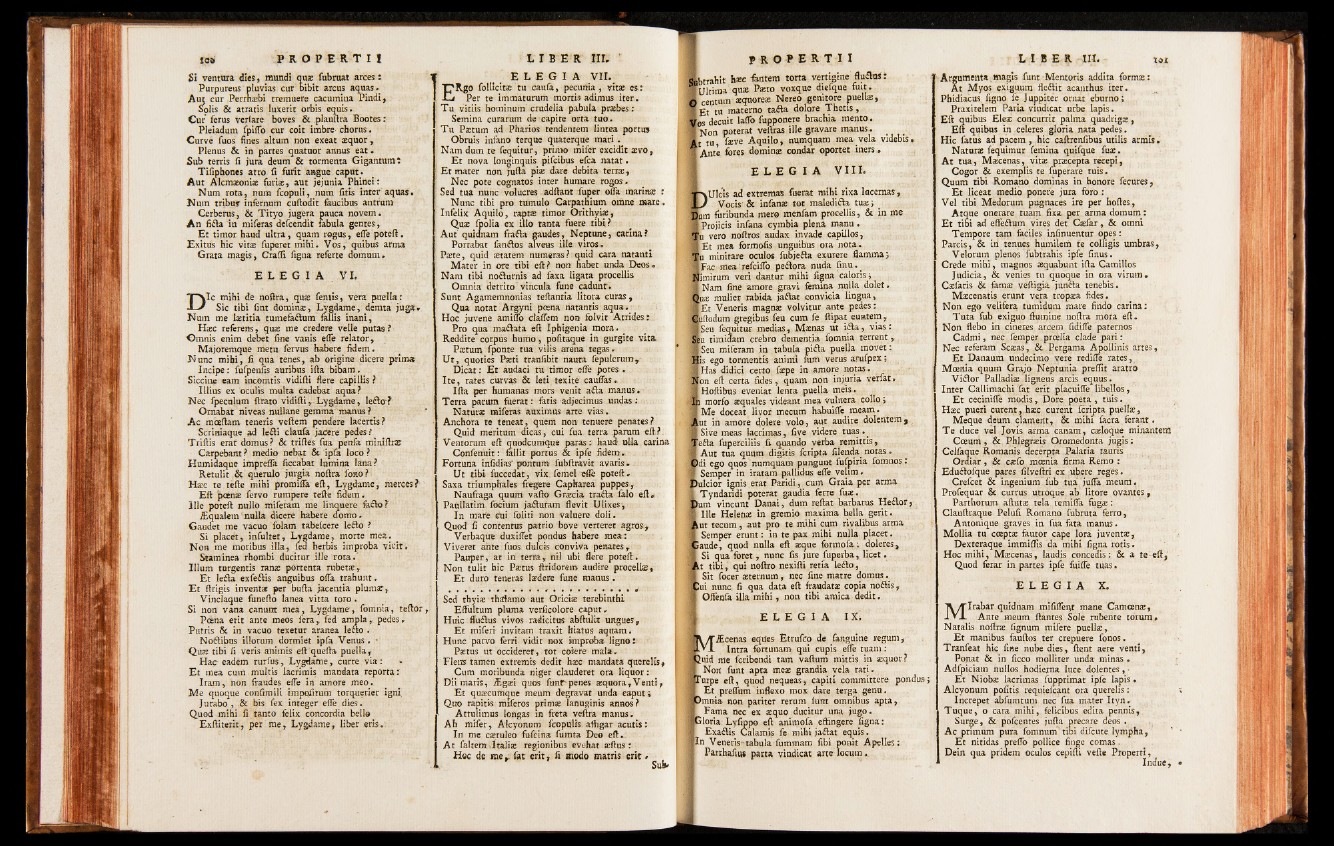 100 PROPERTII
Si ventura dies, mundi quæ ſubruat arces:
Purpureus pluvias cur bibit arcus aquas.
Aut cur Perrhæbi tremuere cacumina Pindi,
Solis & atratis luxerit orbis equis.
Cur ſerus verſare boves & plauſtra Bootes:
Pleiadum ſpiſſo cur coit imbre chorus.
Curve ſuos fines altum non exeat æquor,
Plenus & in partes quatuor annus eat.
Sub terris ſi jura deum & tormenta Gigantum:
Tiſiphones atro ſi furit angue caput.
Aut Alcmæoniæ furiæ, aut jejunia Phinei:
Num rota, num ſcopuli, num ſitis inter aquas.
Num tribus infernum cuſtodit faucibus antrum
Cerberus, & Tityo jugera pauca novem.
An ficta in miſeras deſcendit fabula gentes,
Et timor haud ultra, quam rogus, eſſe poteſt.
Exitus hic vitæ ſuperet mihi. Vos, quibus arma
Grata magis, Craſſi ſigna referte domum.
ELEGIA VI.
DIc mihi de noſtra, quæ ſentis, vera puella:
Sic tibi ſint dominæ, Lygdame, demta juga.
Num me lætitia tumefactum fallis inani,
Hæc referens, quæ me credere velle putas?
Omnis enim debet ſine vanis eſſe relator,
Majoremque metu ſervus habere fidem.
Nunc mihi, ſi qua tenes, ab origine dicere prima
Incipe: ſuſpenſis auribus iſta bibam.
Siccine eam incomtis vidiſti flere capillis?
Illius ex oculis multa cadebat aqua?
Nec ſpeculum ſtrato vidiſti, Lygdame, lecto?
Ornabat niveas nullane gemma manus?
Ac mœſtam teneris veſtem pendere lacertis?
Scriniaque ad lecti clauſa jacere pedes?
Triſtis erat domus? & triſtes ſua penſa miniſtræ
Carpebant? medio nebat & ipſa loco?
Humidaque impreſſa ſiccabat lumina lana?
Retulit & querulo jurgia noſtra ſono?
Hæc te teſte mihi promiſſa eſt, Lygdame, merces?
Eſt pœnæ ſervo rumpere teſte fidem.
Ille poteſt nullo miſeram me linquere facto?
Æqualem nulla dicere habere domo.
Gaudet me vacuo ſolam tabeſcere lecto?
Si placet, inſultet, Lygdame, morte mea.
Non me moribus illa, ſed herbis improba vicit.
Staminea rhombi ducitur ille rota.
Illum turgentis ranæ portenta rubetæ,
Et lecta exſectis anguibus oſſa trahunt.
Et ſtrigis inventæ per buſta jacentia plumæ,
Vinctaque funeſto lanea vitta toro.
Si non vana canunt mea, Lygdame, ſomnia, teſtor,
Pœna erit ante meos ſera, ſed ampla, pedes.
Putris & in vacuo texetur aranea lecto.
Noctibus illorum dormiet ipſa Venus.
Quæ tibi ſi veris animis eſt queſta puella,
Hac eadem rurſus, Lygdame, curre via:
Et mea cum multis lacrimis mandata reporta:
Iram, non fraudes eſſe in amore meo.
Me quoque conſimili impoſitum torquerier igni
Jurabo, & bis ſex integer eſſe dies.
Quod mihi ſi tanto felix concordia bello
Exſtiterit, per me, Lygdame, liber eris.
LIBER III.
ELEGIA VII.
ERgo ſollicitæ tu cauſa, pecunia, vitæ es:
Per te immaturum mortis adimus iter.
Tu vitiis hominum crudelia pabula præbes:
Semina curarum de capite orta tuo.
Tu Pætum ad Pharios tendentem lintea portus
Obruis inſano terque quaterque mari.
Nam dum te ſequitur, primo miſer excidit ævo,
Et nova longinquis piſcibus eſca natat.
Et mater non juſta piæ dare debita terræ,
Nec pote cognatos inter humare rogos.
Sed tua nunc volucres adſtant ſuper oſſa marinæ:
Nunc tibi pro tumulo Carpathium omne mare.
Infelix Aquilo, raptæ timor Orithyiæ,
Quæ ſpolia ex illo tanta fuere tibi?
Aut quidnam fracta gaudes, Neptune, carina?
Portabat ſanctos alveus ille viros.
Pæte, quid ætatem numeras? quid cara natanti
Mater in ore tibi eſt? non habet unda Deos.
Nam tibi nocturnis ad ſaxa ligata procellis
Omnia detrito vincula fune cadunt.
Sunt Agamemnonias teſtantia litora curas,
Qua notat Argyni pœna natantis aqua.
Hoc juvene amiſſo claſſem non ſolvit Atrides:
Pro qua mactata eſt Iphigenia mora.
Reddite corpus humo, poſitaque in gurgite vita
Pætum ſponte tua vilis arena tegas.
Ut, quoties Pæti tranſibit nauta ſepulcrum,
Dicat: Et audaci tu timor eſſe potes.
Ite, rates curvas & leti texite cauſſas.
Iſta per humanas mors venit acta manus.
Terra parum fuerat: fatis adjecimus undas:
Naturæ miſeras auximus arte vias.
Anchora te teneat, quem non tenuere penates?
Quid meritum dicas, cui ſua terra parum eſt?
Ventorum eſt quodcumque paras: haud ulla carina
Conſenuit: fallit portus & ipſe fidem.
Fortuna inſidias pontum ſubſtravit avaris.
Ut tibi ſuccedat, vix ſemel eſſe poteſt.
Saxa triumphales fregere Capharea puppes,
Naufraga quum vaſto Græcia tracta ſalo eſt.
Paullatim ſocium jacturam flevit Ulixes,
In mare cui ſoliti non valuere doli.
Quod ſi contentus patrio bove verteret agros,
Verbaque duxiſſet pondus habere mea:
Viveret ante ſuos dulcis conviva penates,
Pauper, at in terra, nil ubi flere poteſt.
Non tulit hic Pætus ſtridorem audire procellæ,
Et duro teneras lædere fune manus.
Sed thyiæ thalamo aut Oriciæ terebinthi
Effultum pluma verſicolore caput.
Huic fluctus vivos radicitus abſtulit ungues,
Et miſeri invitam traxit hiatus aquam.
Hunc parvo ferri vidit nox improba ligno:
Pætus ut occideret, tot coiere mala.
Flens tamen extremis dedit hæc mandata querelis,
Cum moribunda niger clauderet ora liquor:
Dii maris, Ægæi quos ſunt penes æquora, Venti,
Et quæcumque meum degravat unda caput;
Quo rapitis miſeros primæ lanuginis annos?
Attulimus longas in freta veſtra manus.
Ah miſer, Alcyonum ſcopulis affligar acutis:
In me cæruleo fuſcina ſumta Deo eſt.
At ſaltem Italiæ regionibus evehat æſtus:
Hoc de me, ſat erit, ſi modo matris erit.
Sub-
PROPERTII
Subtrahit hæc fantem torta vertigine fluctus:
Ultima quæ Pæto voxque dieſque fuit.
O centum æquoreæ Nereo genitore puellæ,
Et tu materno tacta dolore Thetis,
Vos decuit laſſo ſupponere brachia mento.
Non poterat veſtras ille gravare manus.
At tu, ſæve Aquilo, numquam mea vela videbis.
Ante fores dominæ condar oportet iners.
ELEGIA VIII.
DUlcis ad extremas fuerat mihi rixa lucernas,
Vocis & inſanæ tot maledicta tuæ;
Dum furibunda mero menſam procellis, & in me
Projicis inſana cymbia plena manu.
Tu vero noſtros audax invade capillos,
Et mea formoſis unguibus ora nota.
Tu minitare oculos ſubjecta exurere flamma;
Fac mea reſciſſo pectora nuda ſinu.
Nimirum veri dantur mihi ſigna caloris;
Nam ſine amore gravi femina nulla dolet.
Quæ mulier rabida jactat convicia lingua,
Et Veneris magnæ volvitur ante pedes:
Cuſtodum gregibus ſeu cum ſe ſtipat euntem,
Seu ſequitur medias, Mænas ut icta, vias:
Seu timidam crebro dementia ſomnia terrent,
Seu miſeram in tabula picta puella movet:
His ego tormentis animi ſum verus aruſpex;
Has didici certo ſæpe in amore notas.
Non eſt certa fides, quam non injuria verſat.
Hoſtibus eveniat lenta puella meis.
In morſo æquales videant mea vulnera collo;
Me doceat livor mecum habuiſſe meam.
Aut in amore dolere volo, aut audire dolentem,
Sive meas lacrimas, ſive videre tuas.
Tecta ſuperciliis ſi quando verba remittis,
Aut tua quum digitis ſcripta ſilenda notas.
Odi ego quos numquam pungunt ſuſpiria ſomnos:
Semper in iratam pallidus eſſe velim.
Dulcior ignis erat Paridi, cum Graia per arma
Tyndaridi poterat gaudia ferre ſuæ.
Dum vincunt Danai, dum reſtat barbarus Hector,
Ille Helenæ in gremio maxima bella gerit.
Aut tecum, aut pro te mihi cum rivalibus arma
Semper erunt: in te pax mihi nulla placet.
Gaude, quod nulla eſt æque formoſa; doleres,
Si qua foret, nunc ſis jure ſuperba, licet.
At tibi, qui noſtro nexiſti retia lecto,
Sit ſocer æternum, nec ſine matre domus.
Cui nunc ſi qua data eſt fraudatæ copia noctis,
Offenſa illa mihi, non tibi amica dedit.
ELEGIA IX.
MÆcenas eques Etruſco de ſanguine regum,
Intra fortunam qui cupis eſſe tuam:
Quid me ſcribendi tam vaſtum mittis in æquor?
Non ſunt apta meæ grandia vela rati.
Turpe eſt, quod nequeas, capiti committere pondus;
Et preſſum inflexo mox dare terga genu.
Omnia non pariter rerum ſunt omnibus apta,
Fama nec ex æquo ducitur una jugo.
Gloria Lyſippo eſt animoſa effingere ſigna:
Exactis Calamis ſe mihi jactat equis.
In Veneris tabula ſummam ſibi ponit Apelles:
Parrhaſius parta vindicat arte locum.
LIBER III. 101
Argumenta magis ſunt Mentoris addita formæ:
At Myos exiguum flectit acanthus iter.
Phidiacus ſigno ſe Juppiter ornat eburno;
Praxitelem Paria vindicat urbe lapis.
Eſt quibus Eleæ concurrit palma quadrigæ,
Eſt quibus in celeres gloria nata pedes.
Hic ſatus ad pacem, hic caſtrenſibus utilis armis.
Naturæ ſequimur ſemina quiſque ſuæ.
At tua, Mæcenas, vitæ præcepta recepi,
Cogor & exemplis te ſuperare tuis.
Quum tibi Romano dominas in honore ſecures,
Et liceat medio ponere jura foro:
Vel tibi Medorum pugnaces ire per hoſtes,
Atque onerare tuam fixa per arma domum:
Et tibi ad effectum vires det Cæſar, & omni
Tempore tam faciles inſinuentur opes:
Parcis, & in tenues humilem te colligis umbras,
Velorum plenos ſubtrahis ipſe ſinus.
Crede mihi, magnos æquabunt iſta Camillos
Judicia, & venies tu quoque in ora virum.
Cæſaris & famæ veſtigia juncta tenebis.
Mæcenatis erunt vera tropæa fides.
Non ego velifera tumidum mare findo carina:
Tuta ſub exiguo flumine noſtra mora eſt.
Non flebo in cineres arcem ſidiſſe paternos
Cadmi, nec ſemper prœlia clade pari:
Nec referam Scæas, & Pergama Apollinis artes,
Et Danaum undecimo vere rediſſe rates,
Mœnia quum Grajo Neptunia preſſit aratro
Victor Palladiæ ligneus arcis equus.
Inter Callimachi ſat erit placuiſſe libellos,
Et ceciniſſe modis, Dore poeta, tuis.
Hæc pueri curent, hæc curent ſcripta puellæ,
Meque deum clament, & mihi ſacra ferant.
Te duce vel Jovis arma canam, cæloque minantem
Cœum, & Phlegræis Oromedonta jugis:
Celſaque Romanis decerpta Palatia tauris
Ordiar, & cæſo mœnia firma Remo:
Eductoſque pares ſilveſtri ex ubere reges.
Creſcet & ingenium ſub tua juſſa meum.
Proſequar & currus utroque ab litore ovantes,
Parthorum aſtutæ tela remiſſa fugæ:
Clauſtraque Peluſi Romano ſubruta ferro,
Antonique graves in ſua fata manus.
Mollia tu cœptæ fautor cape lora juventæ,
Dexteraque immiſſis da mihi ſigna rotis.
Hoc mihi, Mæcenas, laudis concedis: & a te eſt,
Quod ferar in partes ipſe fuiſſe tuas.
ELEGIA X.
MIrabar quidnam miſiſſent mane Camœnæ,
Ante meum ſtantes Sole rubente torum.
Natalis noſtræ ſignum miſere puellæ,
Et manibus fauſtos ter crepuere ſonos.
Tranſeat hic ſine nube dies, ſtent aere venti,
Ponat & in ſicco molliter unda minas.
Adſpiciam nullos hodierna luce dolentes,
Et Niobæ lacrimas ſupprimat ipſe lapis.
Alcyonum poſitis requieſcant ora querelis:
Increpet abſumtum nec ſua mater Ityn.
Tuque, o cara mihi, felicibus edita pennis,
Surge, & poſcentes juſta precare deos.
Ac primum pura ſomnum tibi diſcute lympha,
Et nitidas preſſo pollice finge comas.
Dein qua pridem oculos cepiſti veſte Properti,
Indue,